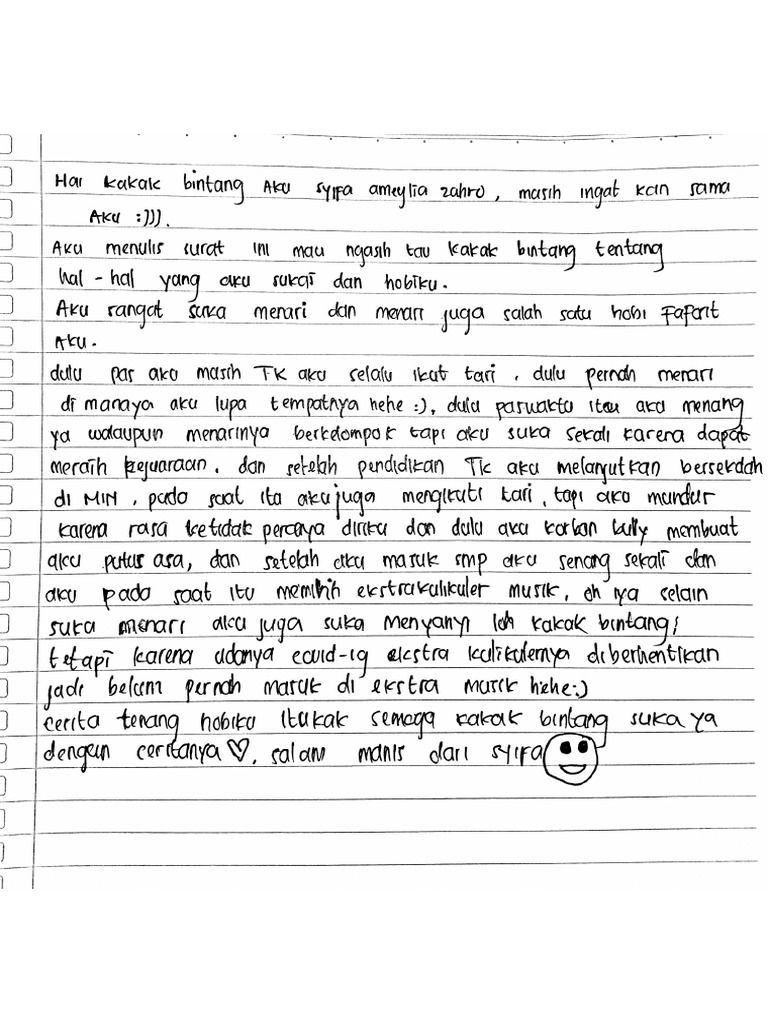 Hai kakak bintang Aku syifa ameylia zahro, masih ingat kan sama
Aku :))).
Aku menulis surat ini mau ngasih tau kakak bintang tentang
hal-hal yang aku sukai dan hobiku.
Aku sangat suka menari dan menari juga salah satu hobi Faforit
Aku.
dulu pas aku masih TK aku selalu ikut tari, dulu pernah menari
di manaya aku lupa tempatnya hehe :), dulu paswaktu itu aku menang
ya walaupun menarinya berkelompok tapi aku suka sekali karena dapat
meraih kejuaraan. dan setelah pendidikan TK aku melanjutkan bersekolah
di MIN, pada saat ita aku juga mengikuti tari, tapi aku mundur
karena rasa ketidak percaya diriku dan dulu aku korban bully membuat
aku putus asa, dan setelah aku masuk smp aku senang sekali dan
aku pada saat itu memilih ekstrakulikuler musik, oh iya selain
suka menari aku juga suka menyanyi loh kakak bintang,
tetapi karena adanya covid-19 ekstra kulikulernya diberhentikan
jadi belum pernah masuk di ekstra musik hehe:)
cerita tenang hobiku itukak semoga kakak bintang suka ya
dengan ceritanya ♡. salam manis dari syifa